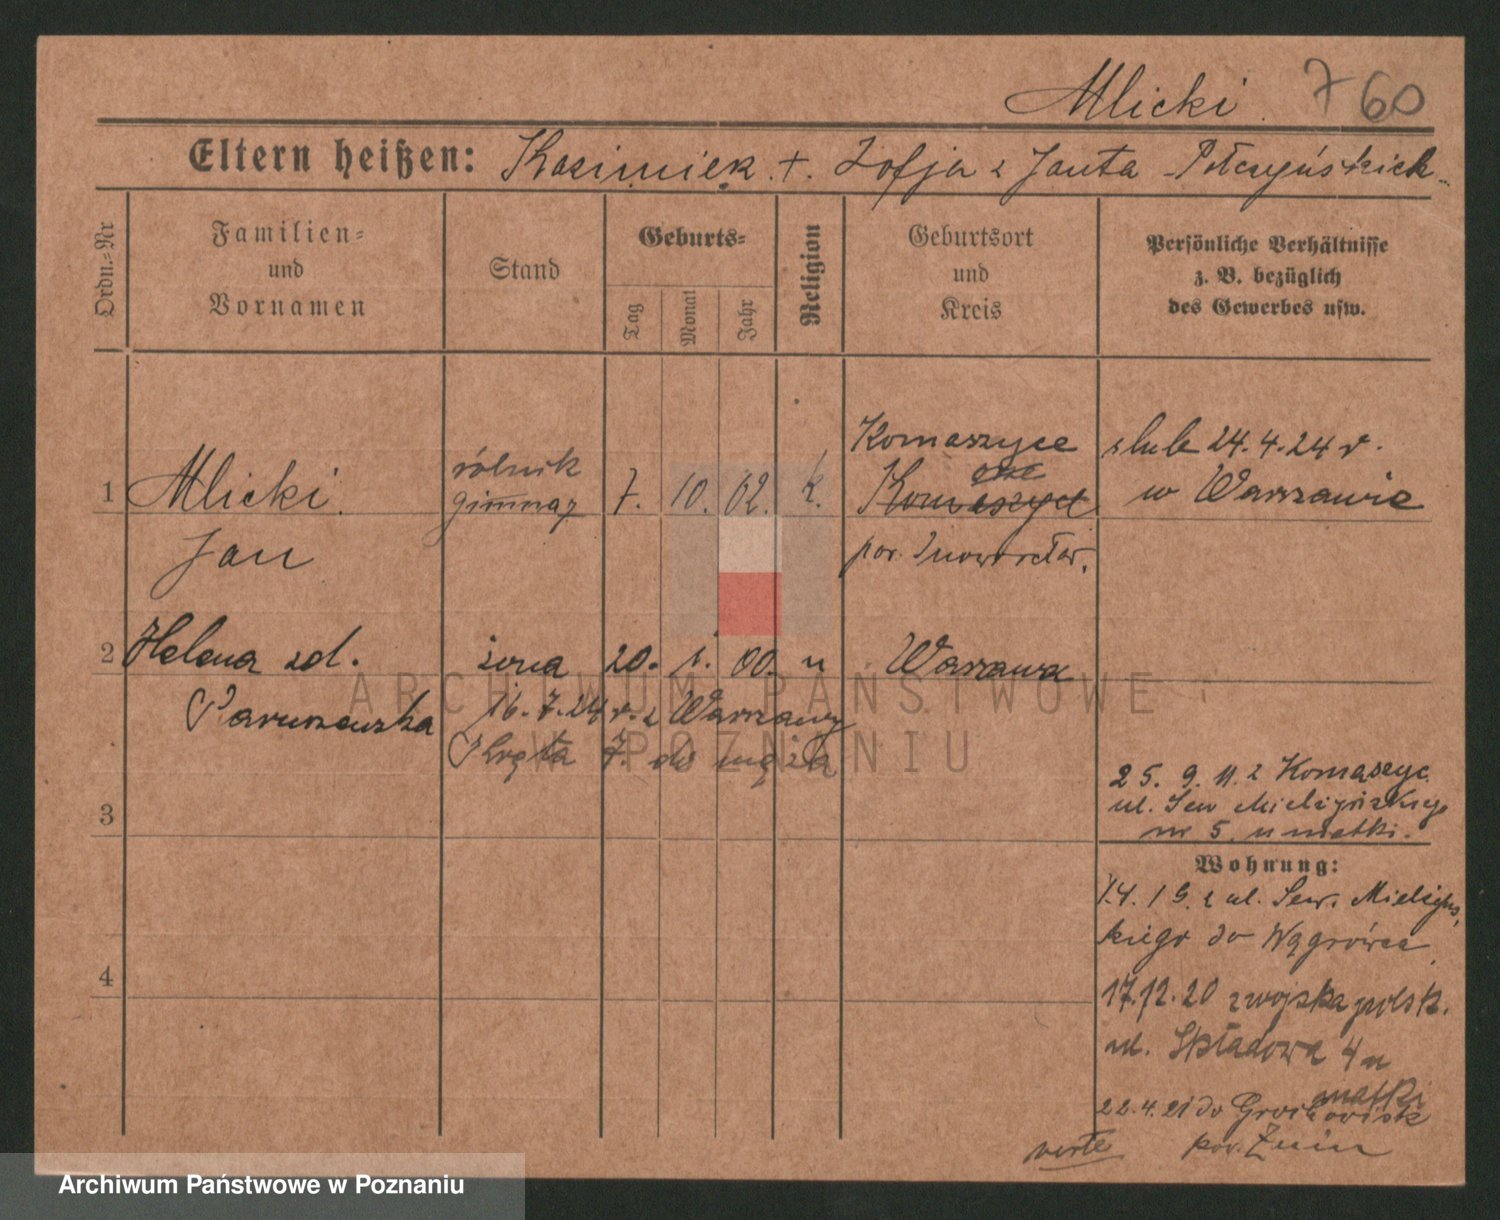 Mlicki. 760
Eltern heißen: Kazimierz. +. Zofja z Janta-Połczyńskich
Ordn.-Nr
Familien- und Vornamen
Stand
Geburts-
Tag
Monat
Jahr
Religion
Geburtsort und Kreis
Persönliche Verhältnisse z. B. bezüglich des Gewerbes usw.
1
Mlicki.
Jan
rólnik
gimnaz
7. 10. 02. k.
Komaszyce
pow. Inowrocław.
ślub 24.4.24 r.
w Warszawie
2
Helena zd.
Paruszewska
żona 20. 1. 00. u Warszawa
16.7.24 r. z Warszawy
Kręta 7. do męża
3
25. 9. 11. z Komaszyc
ul. Sew Mielżyńskiego
nr 5. u matki.
Wohnung:
1.4. 19. z ul. Sew. Mielżyńs
kiego do Wągrówca
4
17.12.20 z wojska polsk.
ul. Składowa 4 u
matki
22.4.21 do Grochowisk
verte pow. Żnin
ARCHIWUM PAŃSTWOWE
W POZNANIU
Archiwum Państwowe w Poznaniu